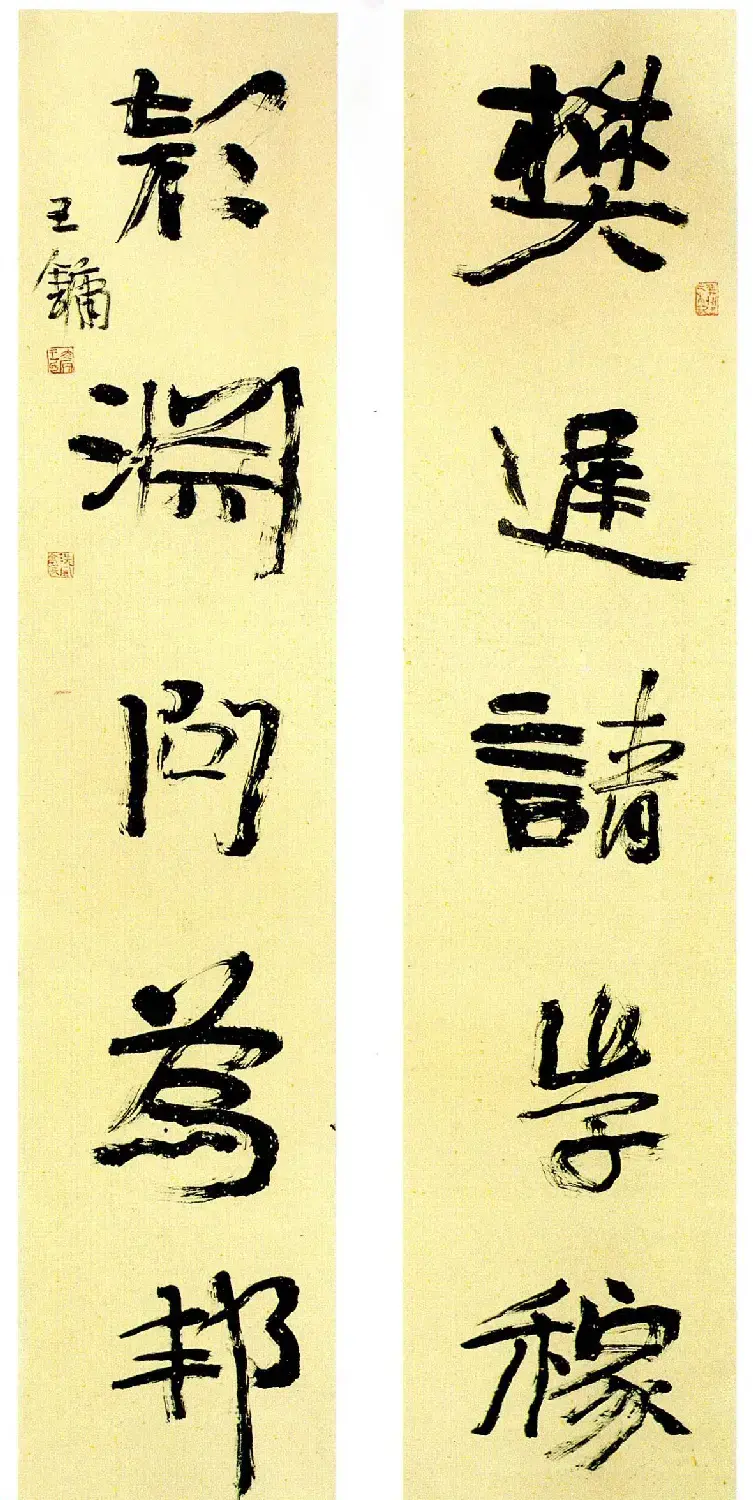 樊遲請學稼
顏淵問為邦
王鏞